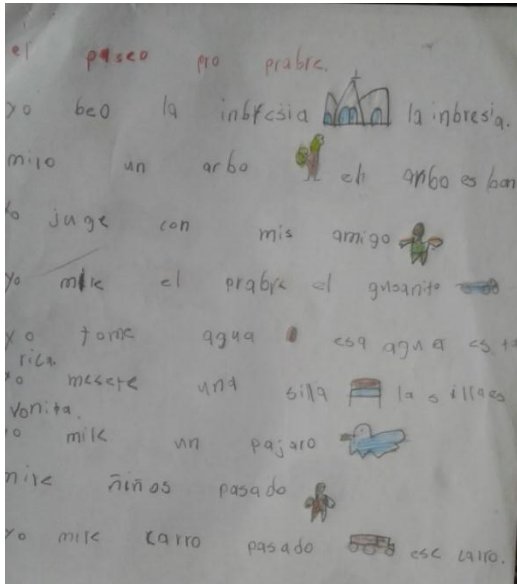 el paseo pro prabre.
yo beo la inbresia la inbresia.
miro un arbo eh arbo es bon
yo juge con mis amigo
yo mire el prabre el gusanito
yo tome agua esa agua es ta
rica.
yo mesete una silla la sillaes
vonita.
yo mire un pajaro
mire ñiños pasado
yo mire carro pasado ese carro.